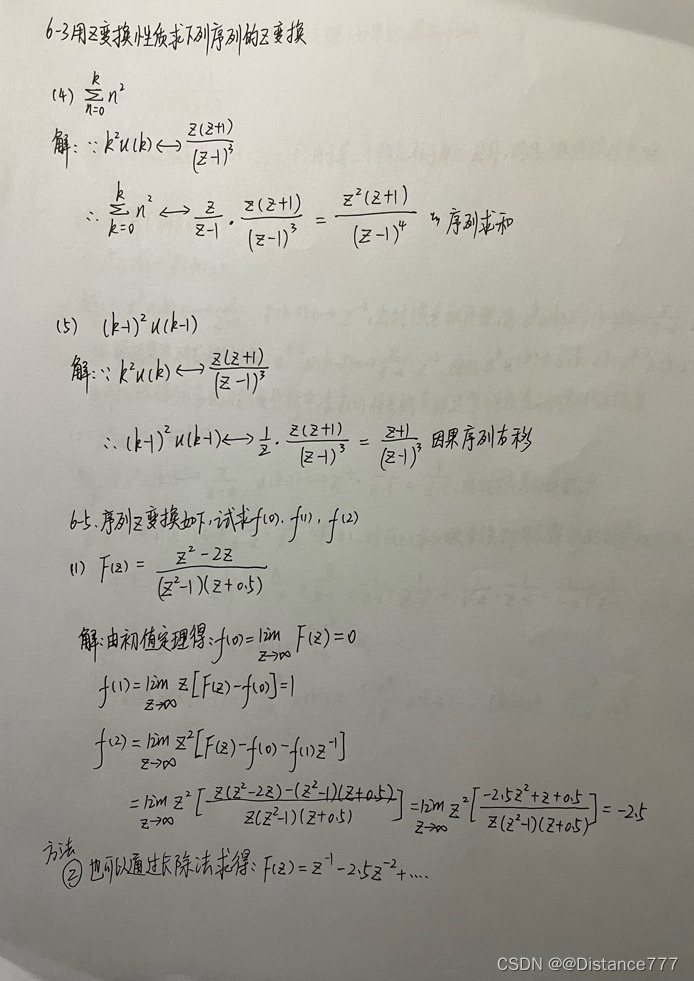 6-3用Z变换性质求下列序列的Z变换
(4) \sum_{n=0}^{k} n^2
解:∵ k^2 u(k) ↔ \frac{z(z+1)}{(z-1)^3}
∴ \sum_{k=0}^{k} n^2 ↔ \frac{z}{z-1} · \frac{z(z+1)}{(z-1)^3} = \frac{z^2(z+1)}{(z-1)^4} 序列求和
(5) (k-1)^2 u(k-1)
解:∵ k^2 u(k) ↔ \frac{z(z+1)}{(z-1)^3}
∴ (k-1)^2 u(k-1) ↔ \frac{1}{z} · \frac{z(z+1)}{(z-1)^3} = \frac{z+1}{(z-1)^3} 因果序列右移
6-5、序列Z变换如下,试求f(0)、f(1)、f(2)
(1) F(z) = \frac{z^2-2z}{(z^2-1)(z+0.5)}
解:由初值定理得:f(0)=\lim_{z→∞} F(z)=0
f(1)=\lim_{z→∞} z[F(z)-f(0)]=1
f(2)=\lim_{z→∞} z^2[F(z)-f(0)-f(1)z^{-1}]
=\lim_{z→∞} z^2[\frac{z(z^2-2z)-(z^2-1)(z+0.5)}{z(z^2-1)(z+0.5)}]=\lim_{z→∞} z^2[\frac{-2.5z^2+z+0.5}{z(z^2-1)(z+0.5)}]=-2.5
方法
② 也可以通过长除法求得:F(z)=z^{-1}-2.5z^{-2}+....
CSDN @@Distance777